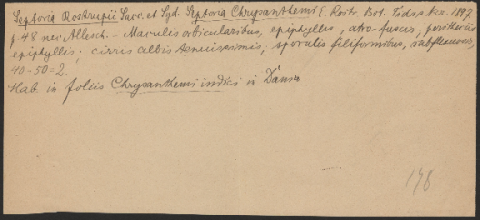 Septoria Rostrupii Sacc. et Syd. Septoria Chrysanthemi E. Rostr. Bot. Tids. 1897
p. 48 nec Allesch. - Maculis orbicularibus, epiphyllis, atro-fuscis, peritheciis
epiphyllis; cirris albis tenuissimis, sporulis filiformibus, subflexuosis,
40-50=2.
Hab. in foliis Chrysanthemi indici in Dania
178